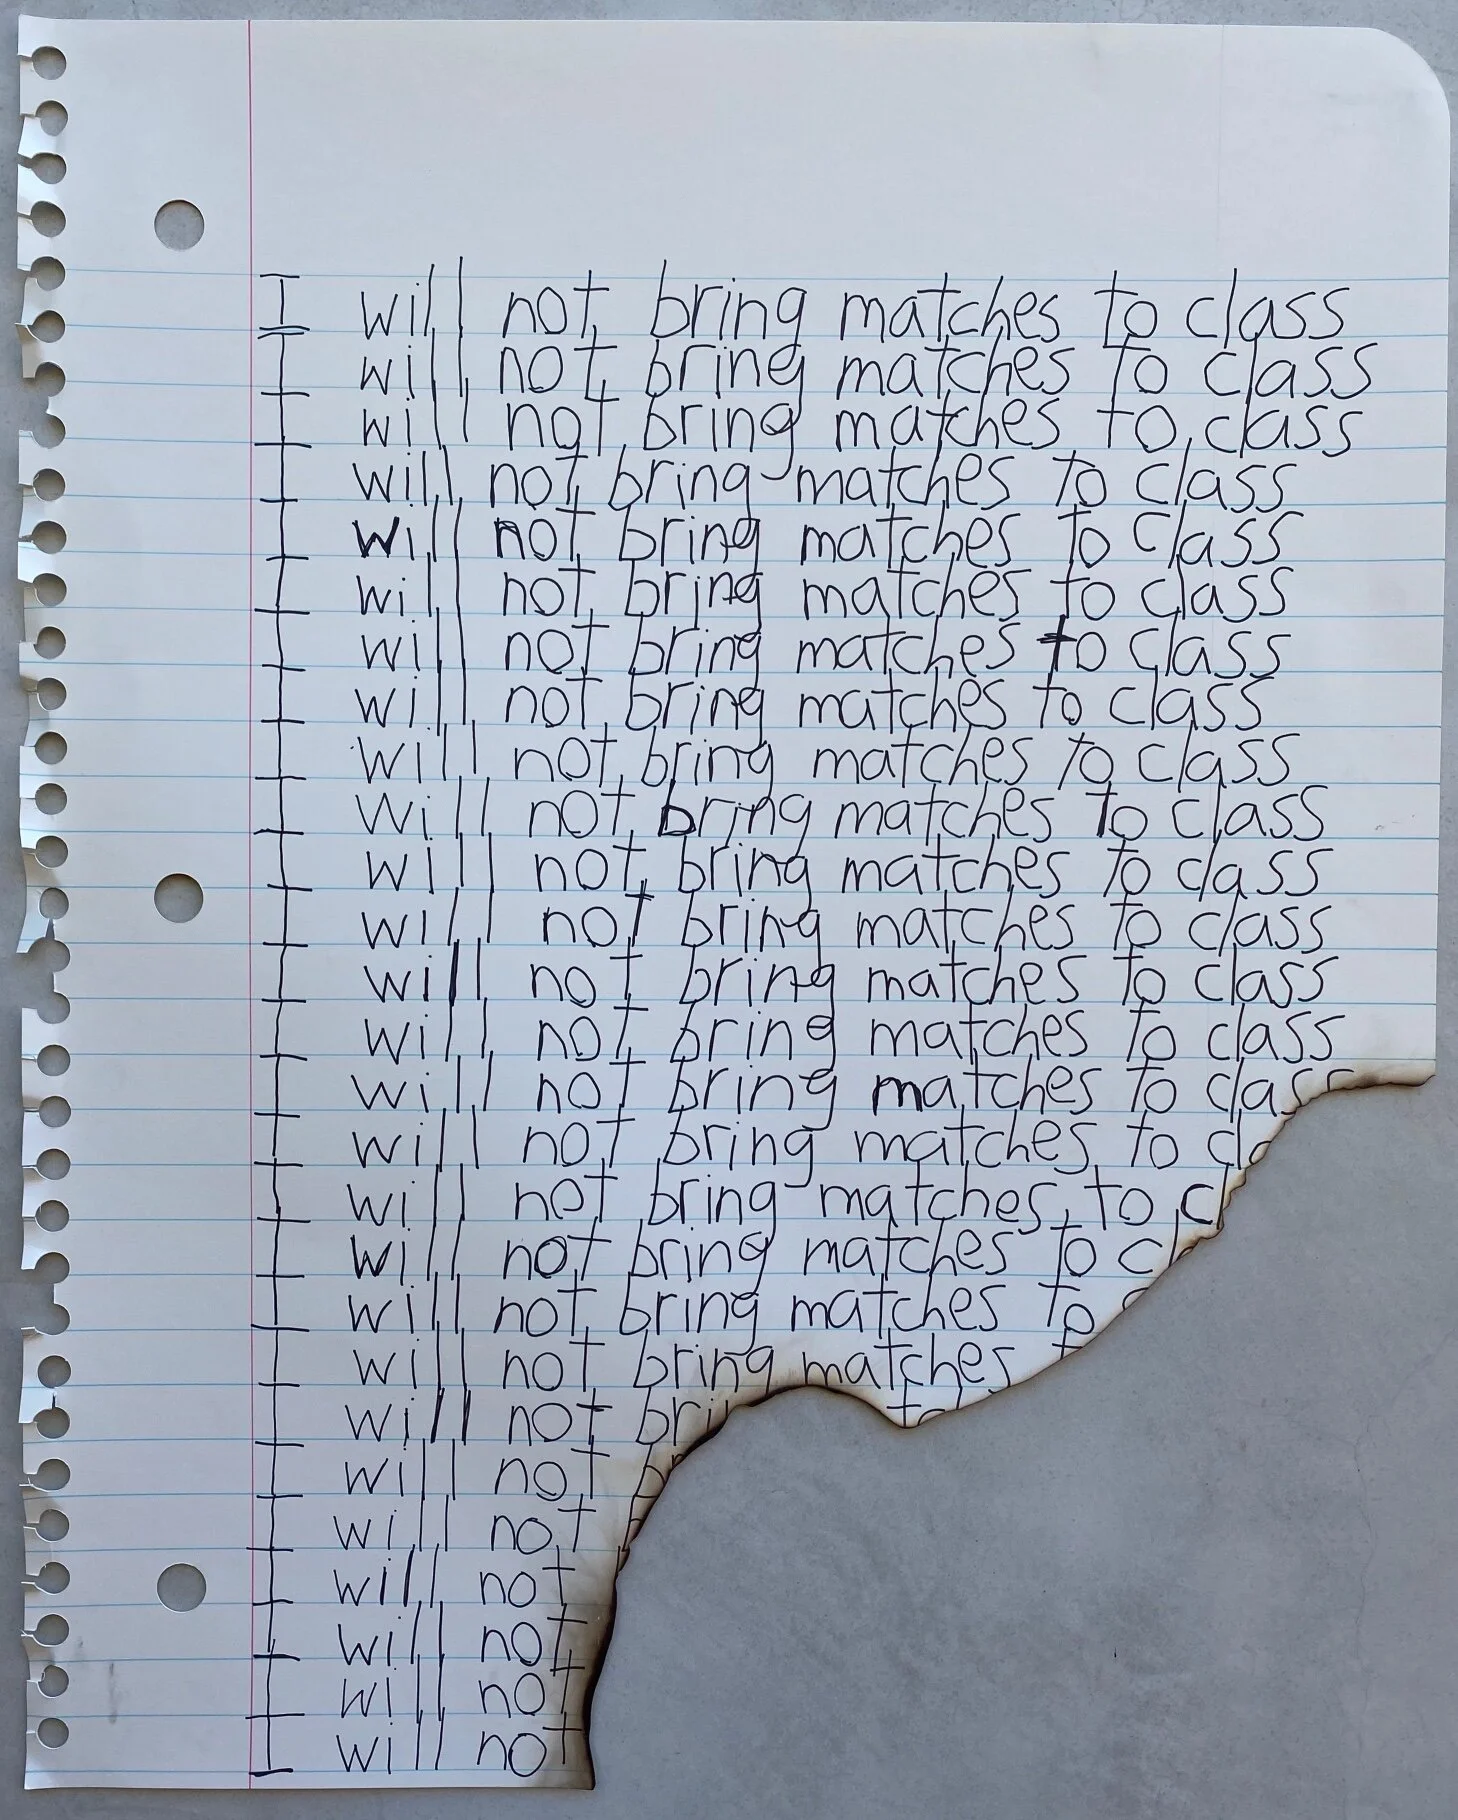 I will not bring matches to class
I will not bring matches to class
I will not bring matches to class
I will not bring matches to class
I will not bring matches to class
I will not bring matches to class
I will not bring matches to class
I will not bring matches to class
I will not bring matches to class
I will not bring matches to class
I will not bring matches to class
I will not bring matches to class
I will not bring matches to class
I will not bring matches to class
I will not bring matches to class
I will not bring matches to cla
I will not bring matches to c
I will not bring matches to cl
I will not bring matches to
I will not bring matches t
I will not bri tc
I will not br
I will not
I will not
I will not
I will not
I will not